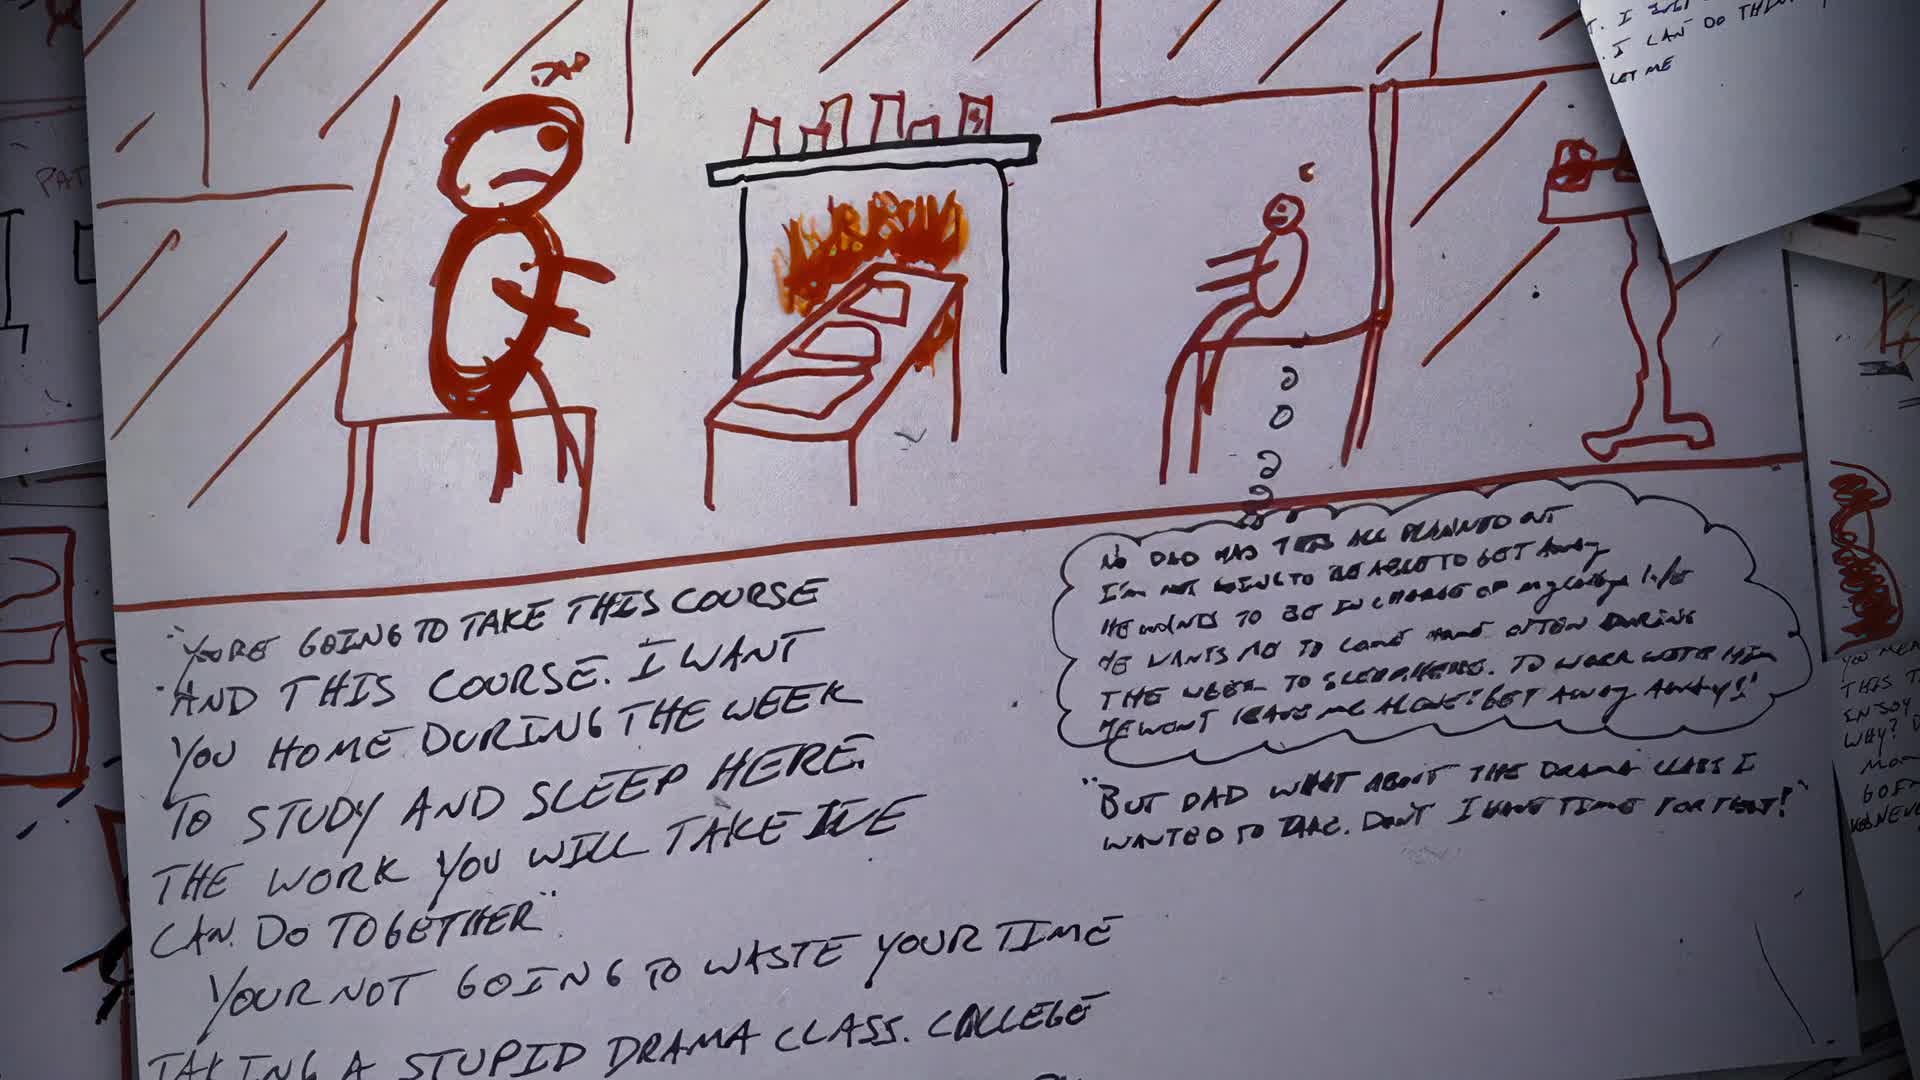 DAD
"YOURE GOING TO TAKE THIS COURSE
AND THIS COURSE. I WANT
YOU HOME DURING THE WEEK
TO STUDY AND SLEEP HERE.
THE WORK YOU WILL TAKE WE
CAN DO TOGETHER"
YOUR NOT GOING TO WASTE YOUR TIME
TAKING A STUPID DRAMA CLASS. COLLEGE
NO DAD HAS THIS ALL PLANNED OUT
I'M NOT GOING TO BE ABLE TO GET AWAY
HE WANTS TO BE IN CHARGE OF my college life
HE WANTS ME TO COME HOME OFTEN DURING
THE WEEK TO SLEEP HERE. TO WORK WITH HIM
HE WONT LEAVE ME ALONE! GET AWAY AWAY!!
"BUT DAD WHAT ABOUT THE DRAMA CLASS I
WANTED TO TAKE. DON'T I HAVE TIME FOR THAT!"
I CAN DO
LET ME
PAT
THIS
ENJOY
WHY?